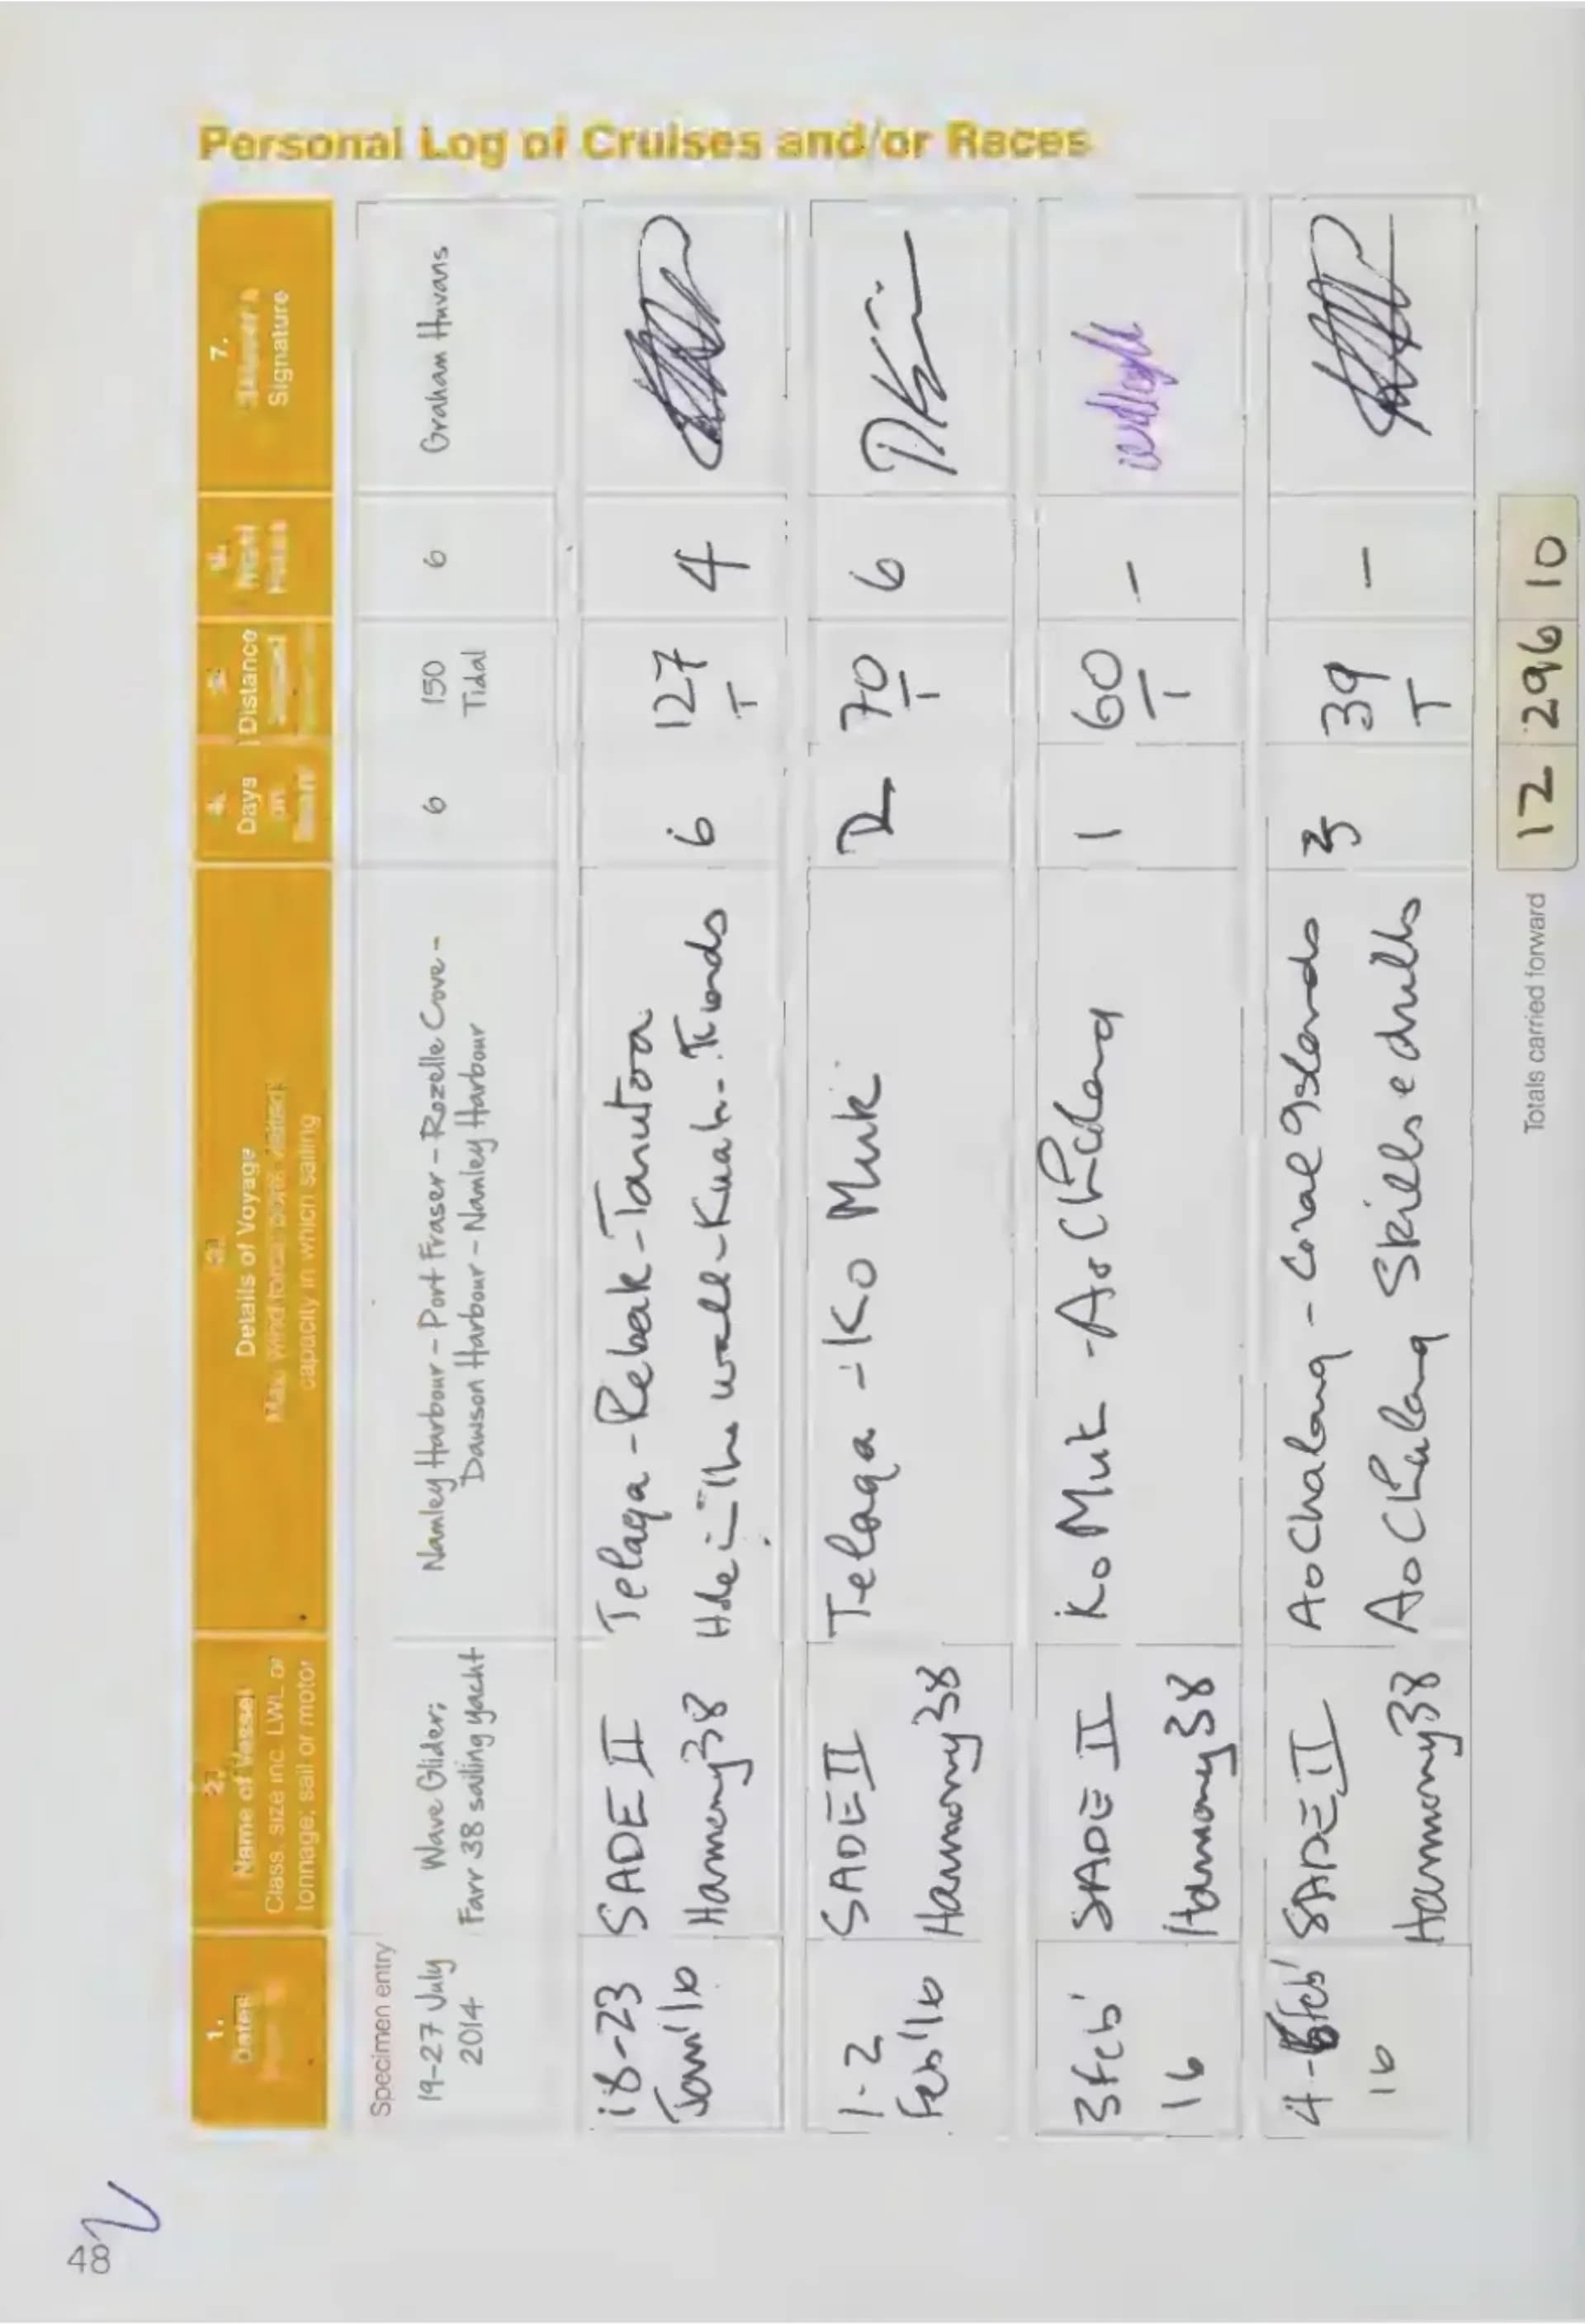 48
Personal Log of Cruises and/or Races
1.
Dates
2.
Name of Vessel
Class, size inc. LWL or
tonnage; sail or motor
3.
Details of Voyage
Max. wind force, ports visited,
capacity in which sailing
4.
Days
on
5.
Distance
6.
Night
Hours
7.
Skipper's
Signature
Specimen entry
19-27 July
2014
Wave Glider;
Farr 38 sailing yacht
Namley Harbour - Port Fraser - Rozelle Cove -
Dawson Harbour - Namley Harbour
6
150
Tidal
6
Graham Huvans
18-23
Jan'16
SADE II
Harmony 38
Telaga - Rebak - Tarutoa
Hole in the wall - Kuah -
6
127
T
4
1-2
Feb'16
SADE II
Harmony 38
Telaga - Ko Muk
70
T
6
3 Feb'
16
SADE II
Harmony 38
Ko Muk - Ao Chalong
1
60
T
-
4 - Feb'
16
SADE II
Harmony 38
Ao Chalong - Coral Islands
Ao Chalong Skills & drills
3
39
T
-
Totals carried forward
12 296 10